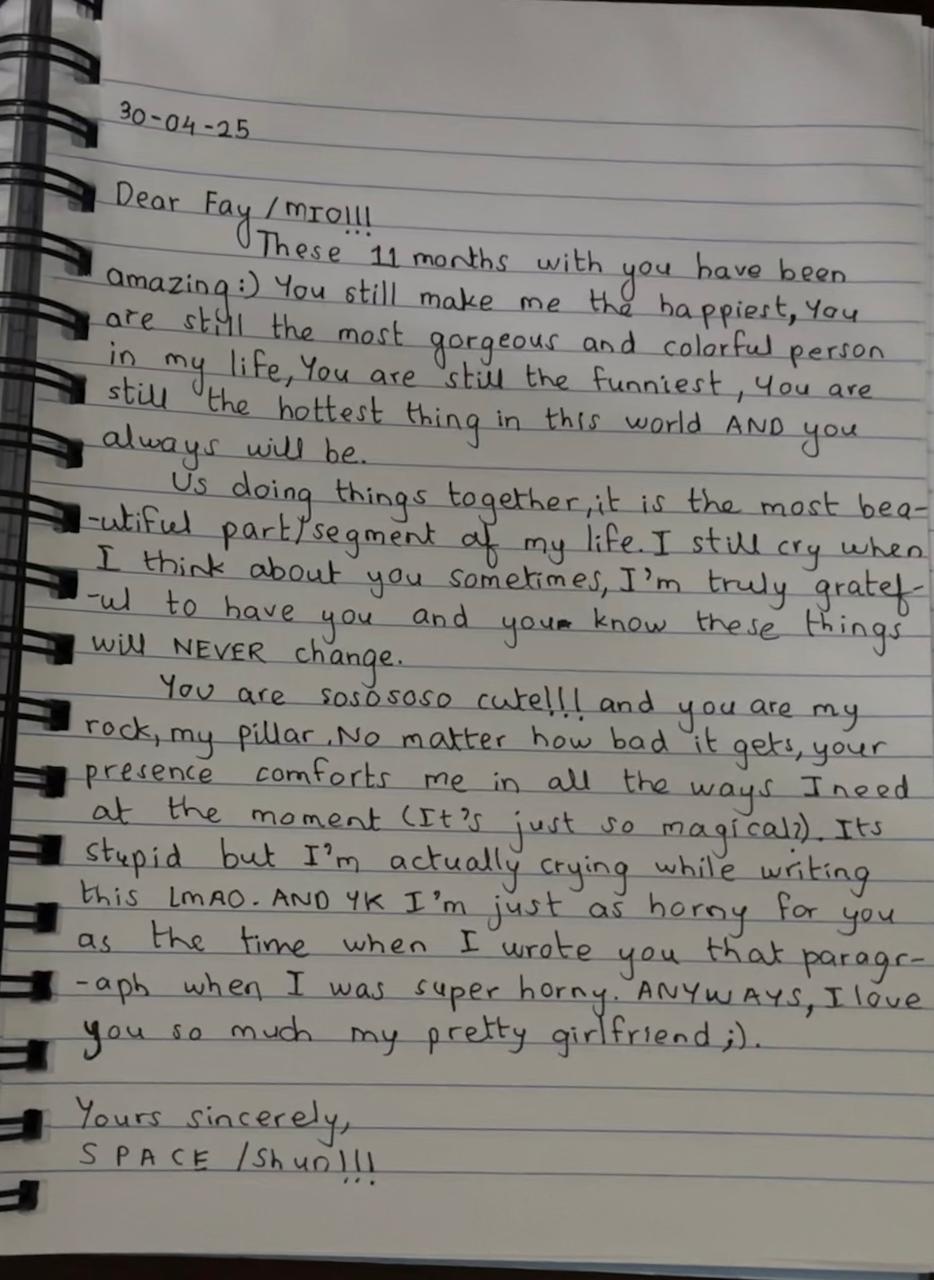 30-04-25
Dear Fay /mro!!!
These 11 months with you have been
amazing:) You still make me the happiest, You
are still the most gorgeous and colorful person
in my life, You are still the funniest, You are
still the hottest thing in this world AND you
always will be.
Us doing things together, it is the most bea-
-utiful part/segment of my life. I still cry when
I think about you sometimes, I'm truly gratef-
-ul to have you and you know these things
will NEVER change.
You are sosososo cute!!! and you are my
rock, my pillar. No matter how bad it gets, your
presence comforts me in all the ways I need
at the moment (It's just so magical?). Its
stupid but I'm actually crying while writing
this LMAO. AND YK I'm just as horny for you
as the time when I wrote you that paragr-
-aph when I was super horny. ANYWAYS, I love
you so much my pretty girlfriend ;).
Yours sincerely,
SPACE /Shun!!!